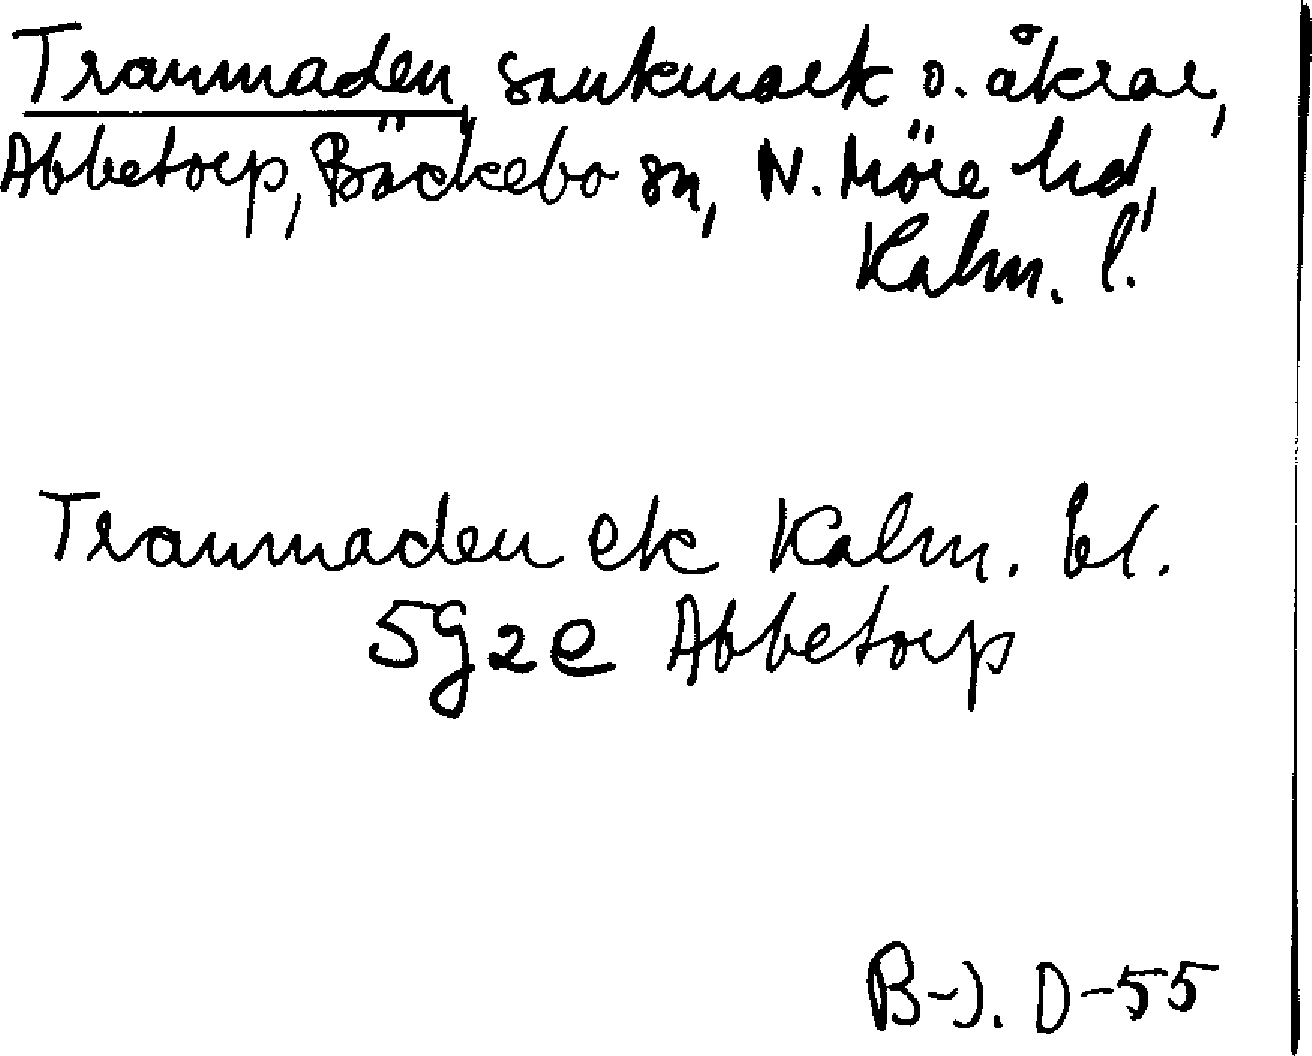 Tranmaden, sankmark o. åkrar,
Abbetorp, Bäckebo sn, N. Möre hd,
Kalm. l.
Tranmaden ek Kalm. bl.
5g2e Abbetorp
B-J. D-55